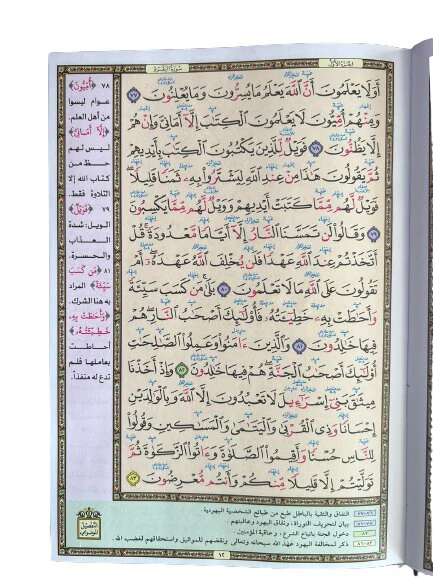 الجزء الأول
سورة البقرة
أَوَلَا يَعْلَمُونَ أَنَّ اللَّهَ يَعْلَمُ مَا يُسِرُّونَ وَمَا يُعْلِنُونَ ٧٧
وَمِنْهُمْ أُمِّيُّونَ لَا يَعْلَمُونَ الْكِتَابَ إِلَّا أَمَانِيَّ وَإِنْ هُمْ
إِلَّا يَظُنُّونَ ٧٨ فَوَيْلٌ لِلَّذِينَ يَكْتُبُونَ الْكِتَابَ بِأَيْدِيهِمْ
ثُمَّ يَقُولُونَ هَذَا مِنْ عِنْدِ اللَّهِ لِيَشْتَرُوا بِهِ ثَمَنًا قَلِيلًا
فَوَيْلٌ لَهُمْ مِمَّا كَتَبَتْ أَيْدِيهِمْ وَوَيْلٌ لَهُمْ مِمَّا يَكْسِبُونَ
٧٩ وَقَالُوا لَنْ تَمَسَّنَا النَّارُ إِلَّا أَيَّامًا مَعْدُودَةً قُلْ
أَتَّخَذْتُمْ عِنْدَ اللَّهِ عَهْدًا فَلَنْ يُخْلِفَ اللَّهُ عَهْدَهُ أَمْ
تَقُولُونَ عَلَى اللَّهِ مَا لَا تَعْلَمُونَ ٨٠ بَلَى مَنْ كَسَبَ سَيِّئَةً
وَأَحَاطَتْ بِهِ خَطِيئَتُهُ فَأُولَئِكَ أَصْحَابُ النَّارِ هُمْ
فِيهَا خَالِدُونَ ٨١ وَالَّذِينَ آمَنُوا وَعَمِلُوا الصَّالِحَاتِ
أُولَئِكَ أَصْحَابُ الْجَنَّةِ هُمْ فِيهَا خَالِدُونَ ٨٢ وَإِذْ أَخَذْنَا
مِيثَاقَ بَنِي إِسْرَائِيلَ لَا تَعْبُدُونَ إِلَّا اللَّهَ وَبِالْوَالِدَيْنِ
إِحْسَانًا وَذِي الْقُرْبَى وَالْيَتَامَى وَالْمَسَاكِينِ وَقُولُوا
لِلنَّاسِ حُسْنًا وَأَقِيمُوا الصَّلَاةَ وَآتُوا الزَّكَاةَ ثُمَّ
تَوَلَّيْتُمْ إِلَّا قَلِيلًا مِنْكُمْ وَأَنْتُمْ مُعْرِضُونَ ٨٣
٧٨ ﴿أُمِّيُّونَ﴾
عوام ليسوا
من أهل العلم.
﴿إِلَّا أَمَانِيَّ﴾
ليس لهم
حظ من
كتاب الله إلا
التلاوة فقط.
٧٩ ﴿فَوَيْلٌ﴾
الويل: شدة
العذاب
والحسرة.
٨١ ﴿مَن كَسَبَ
سَيِّئَةً﴾ المراد
به هنا الشرك.
﴿وَأَحَاطَتْ بِهِ
خَطِيئَتُهُ﴾
أحاطت
بعاملها فلم
تدع له منفذاً.
٧٦-٧٧ النفاق والتقية بالباطل طبع من طبائع الشخصية اليهودية
٧٨-٨١ بيان لتحريف التوراة، ونفاق اليهود وعاقبتهم
٨٢ دخول الجنة باتباع الشرع، وعاقبة المؤمنين
٨٣-٨٦ ذكر لمخالفة اليهود عهد الله سبحانه وتعالى ونقضهم للمواثيق واستحقاقهم لغضب الله.
١٢